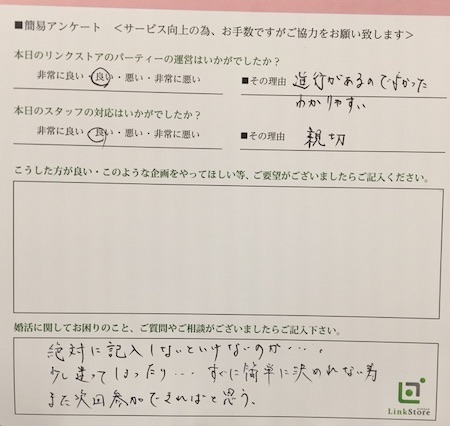 ■簡易アンケート ＜サービス向上の為、お手数ですがご協力をお願い致します＞
本日のリンクストアのパーティーの運営はいかがでしたか？
非常に良い・良い・悪い・非常に悪い
■その理由 進行があるのでよかった
わかりやすい
本日のスタッフの対応はいかがでしたか？
非常に良い・良い・悪い・非常に悪い
■その理由 親切
こうした方が良い・このような企画をやってほしい等、ご要望がございましたらご記入ください。
婚活に関してお困りのこと、ご質問やご相談がございましたらご記入下さい。
絶対に記入しないといけないのか・・・。
少し迷ってしまったり・・・すぐに簡単に決めれない為
また次回参加できればと思う。
LinkStore